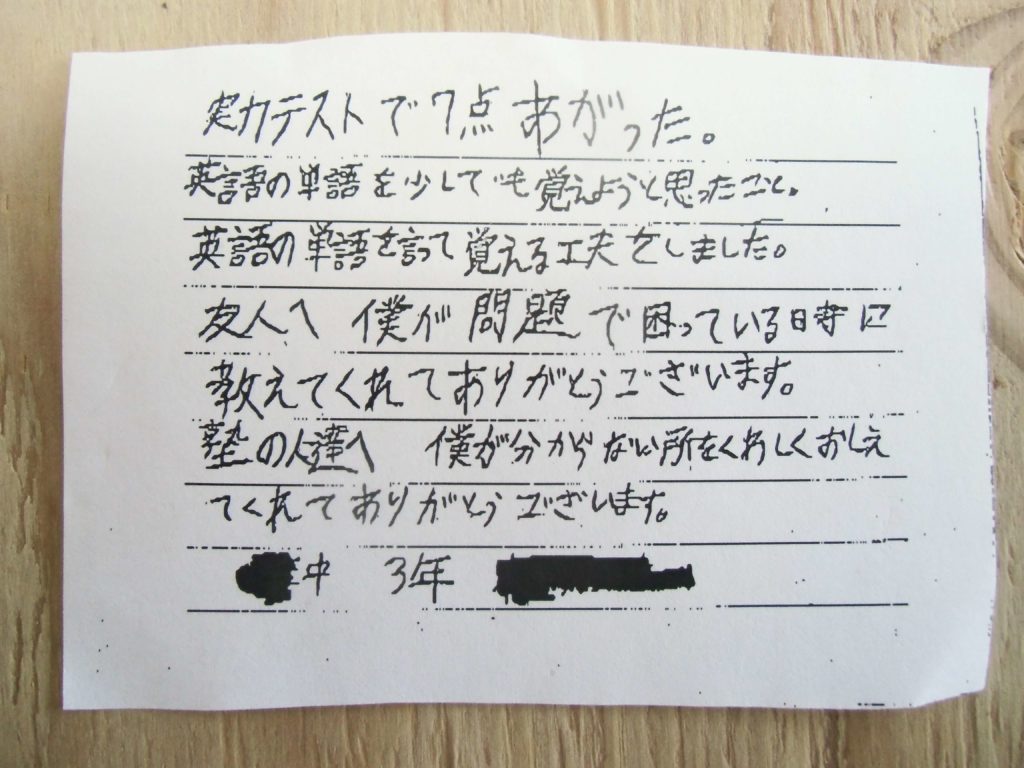 実力テストで7点あがった。
英語の単語を少しでも覚えようと思ったこと。
英語の単語を言って覚える工夫をしました。
友人へ 僕が問題で困っている時に
教えてくれてありがとうございます。
塾の人達へ 僕が分からない所をくわしくおしえ
てくれてありがとうございます。
中 3年